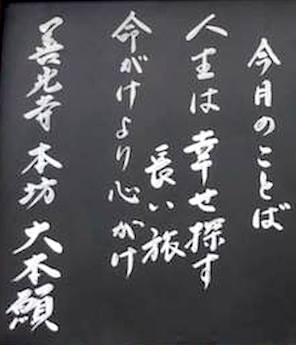 今月のことば
人生は幸せ探す
長い旅
命がけより心がけ
善光寺本坊 大本願